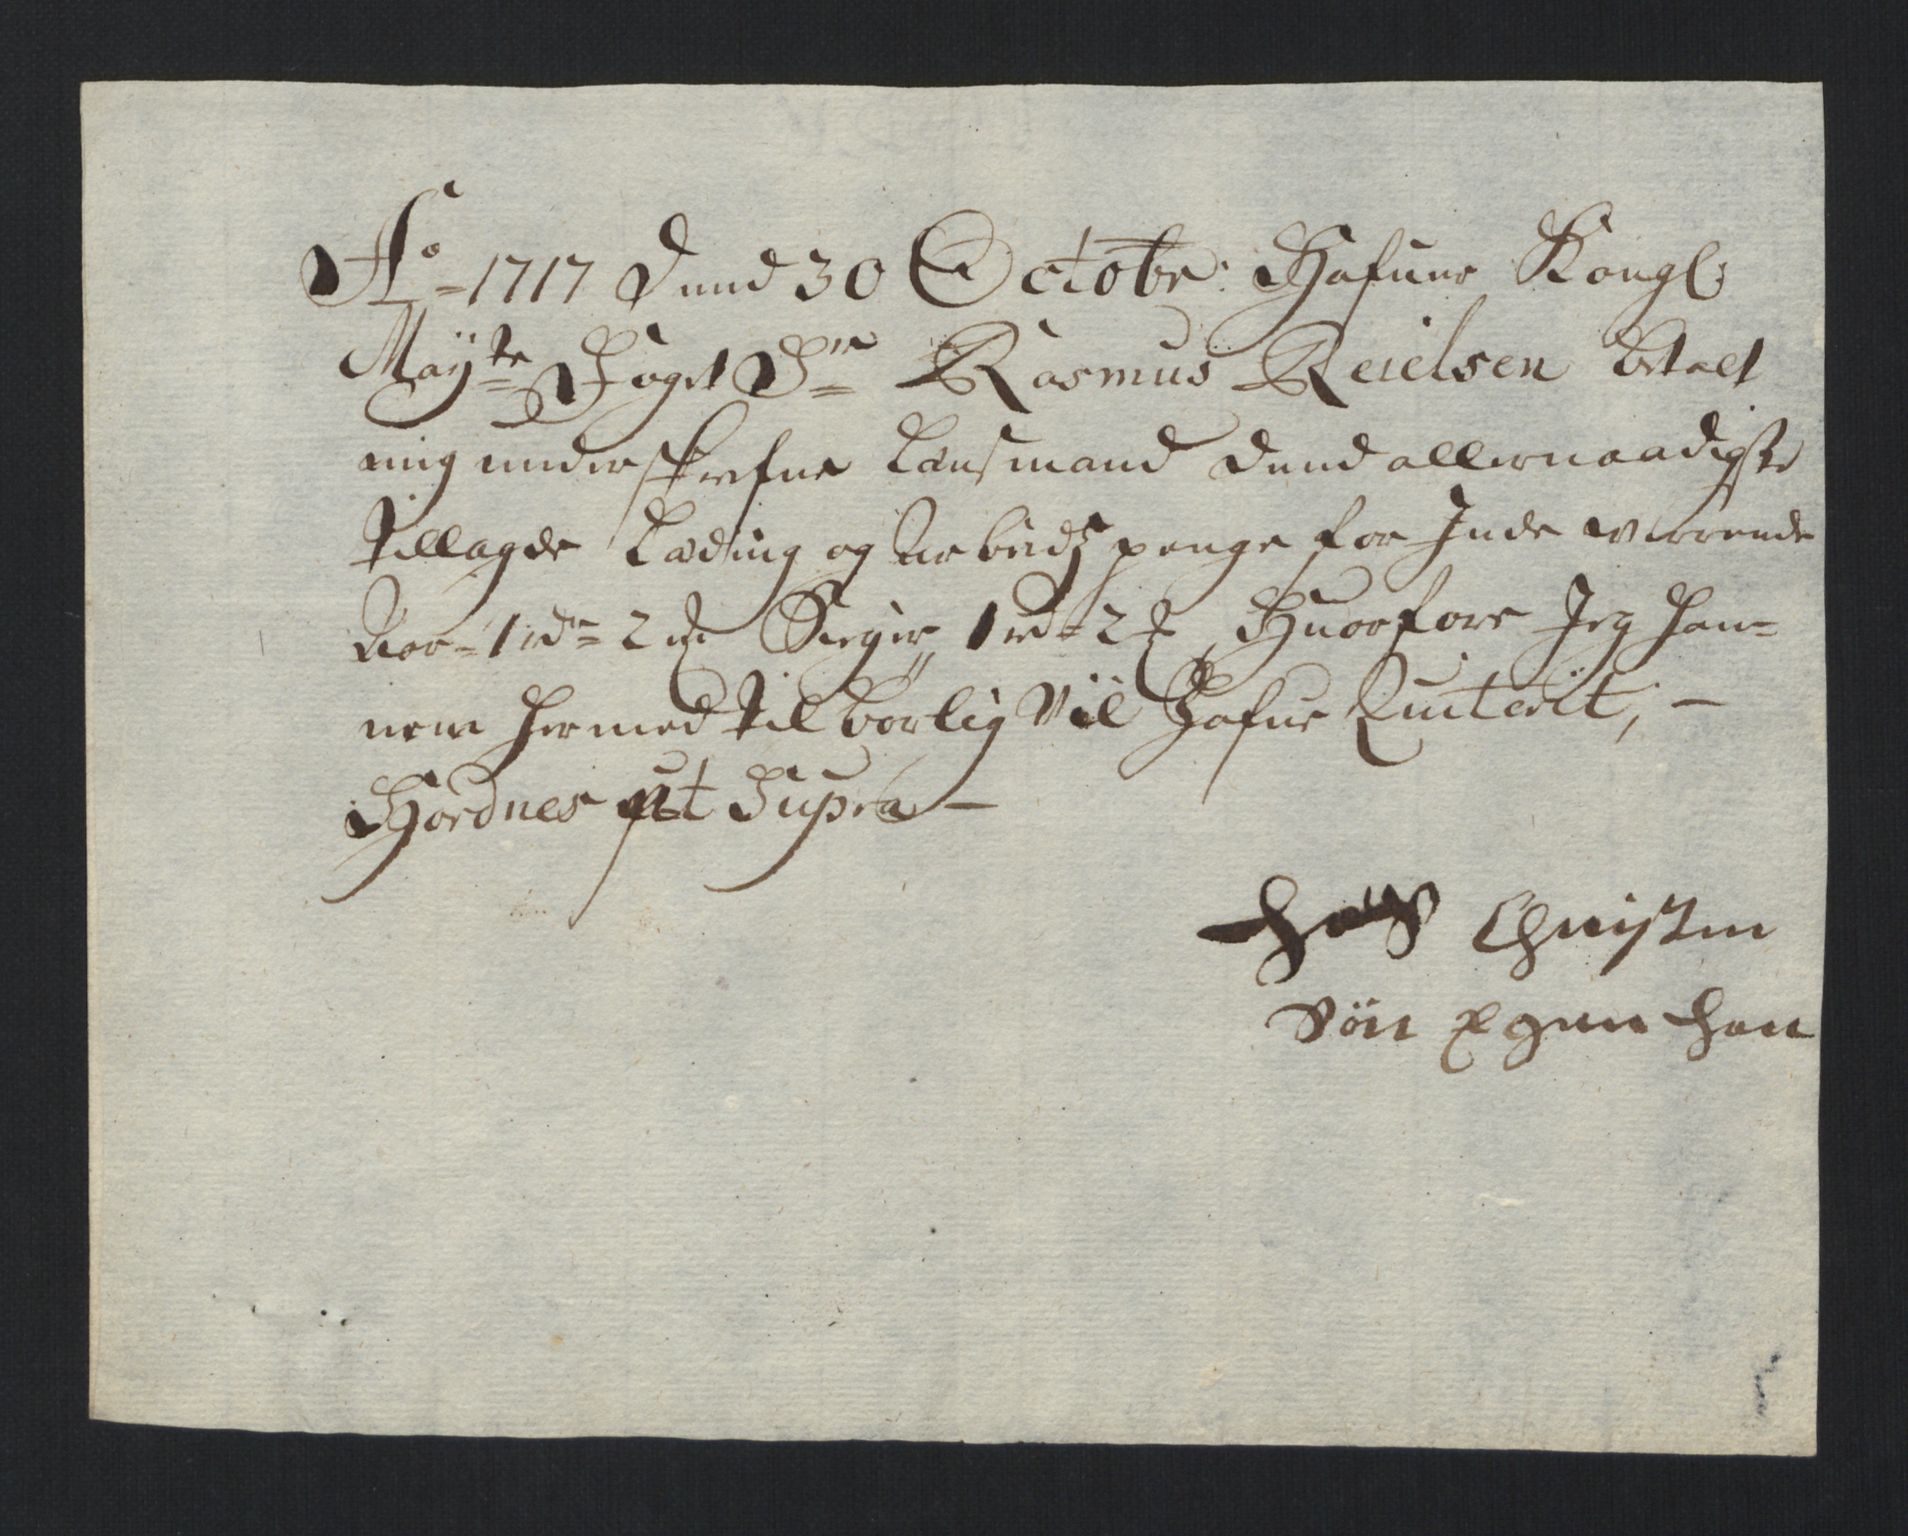 Ao = 1717 Dend 30 Octobr: Hafuer Kongl:
Mayts Foget Sr Rasmus Reielsen betalt
mig underskrefne Lensmand dend allernaadigste
tillagde Leding og Arbeidspenge for Inde werrende
Aar = 1 rdr = 2 Siger 1 rd = 2 Huorfore Jeg han=
nem hermed tilbørlig Vil Hafue Quiterit, —
Hordnes ut Supra —
Christen
Sön Egenhan